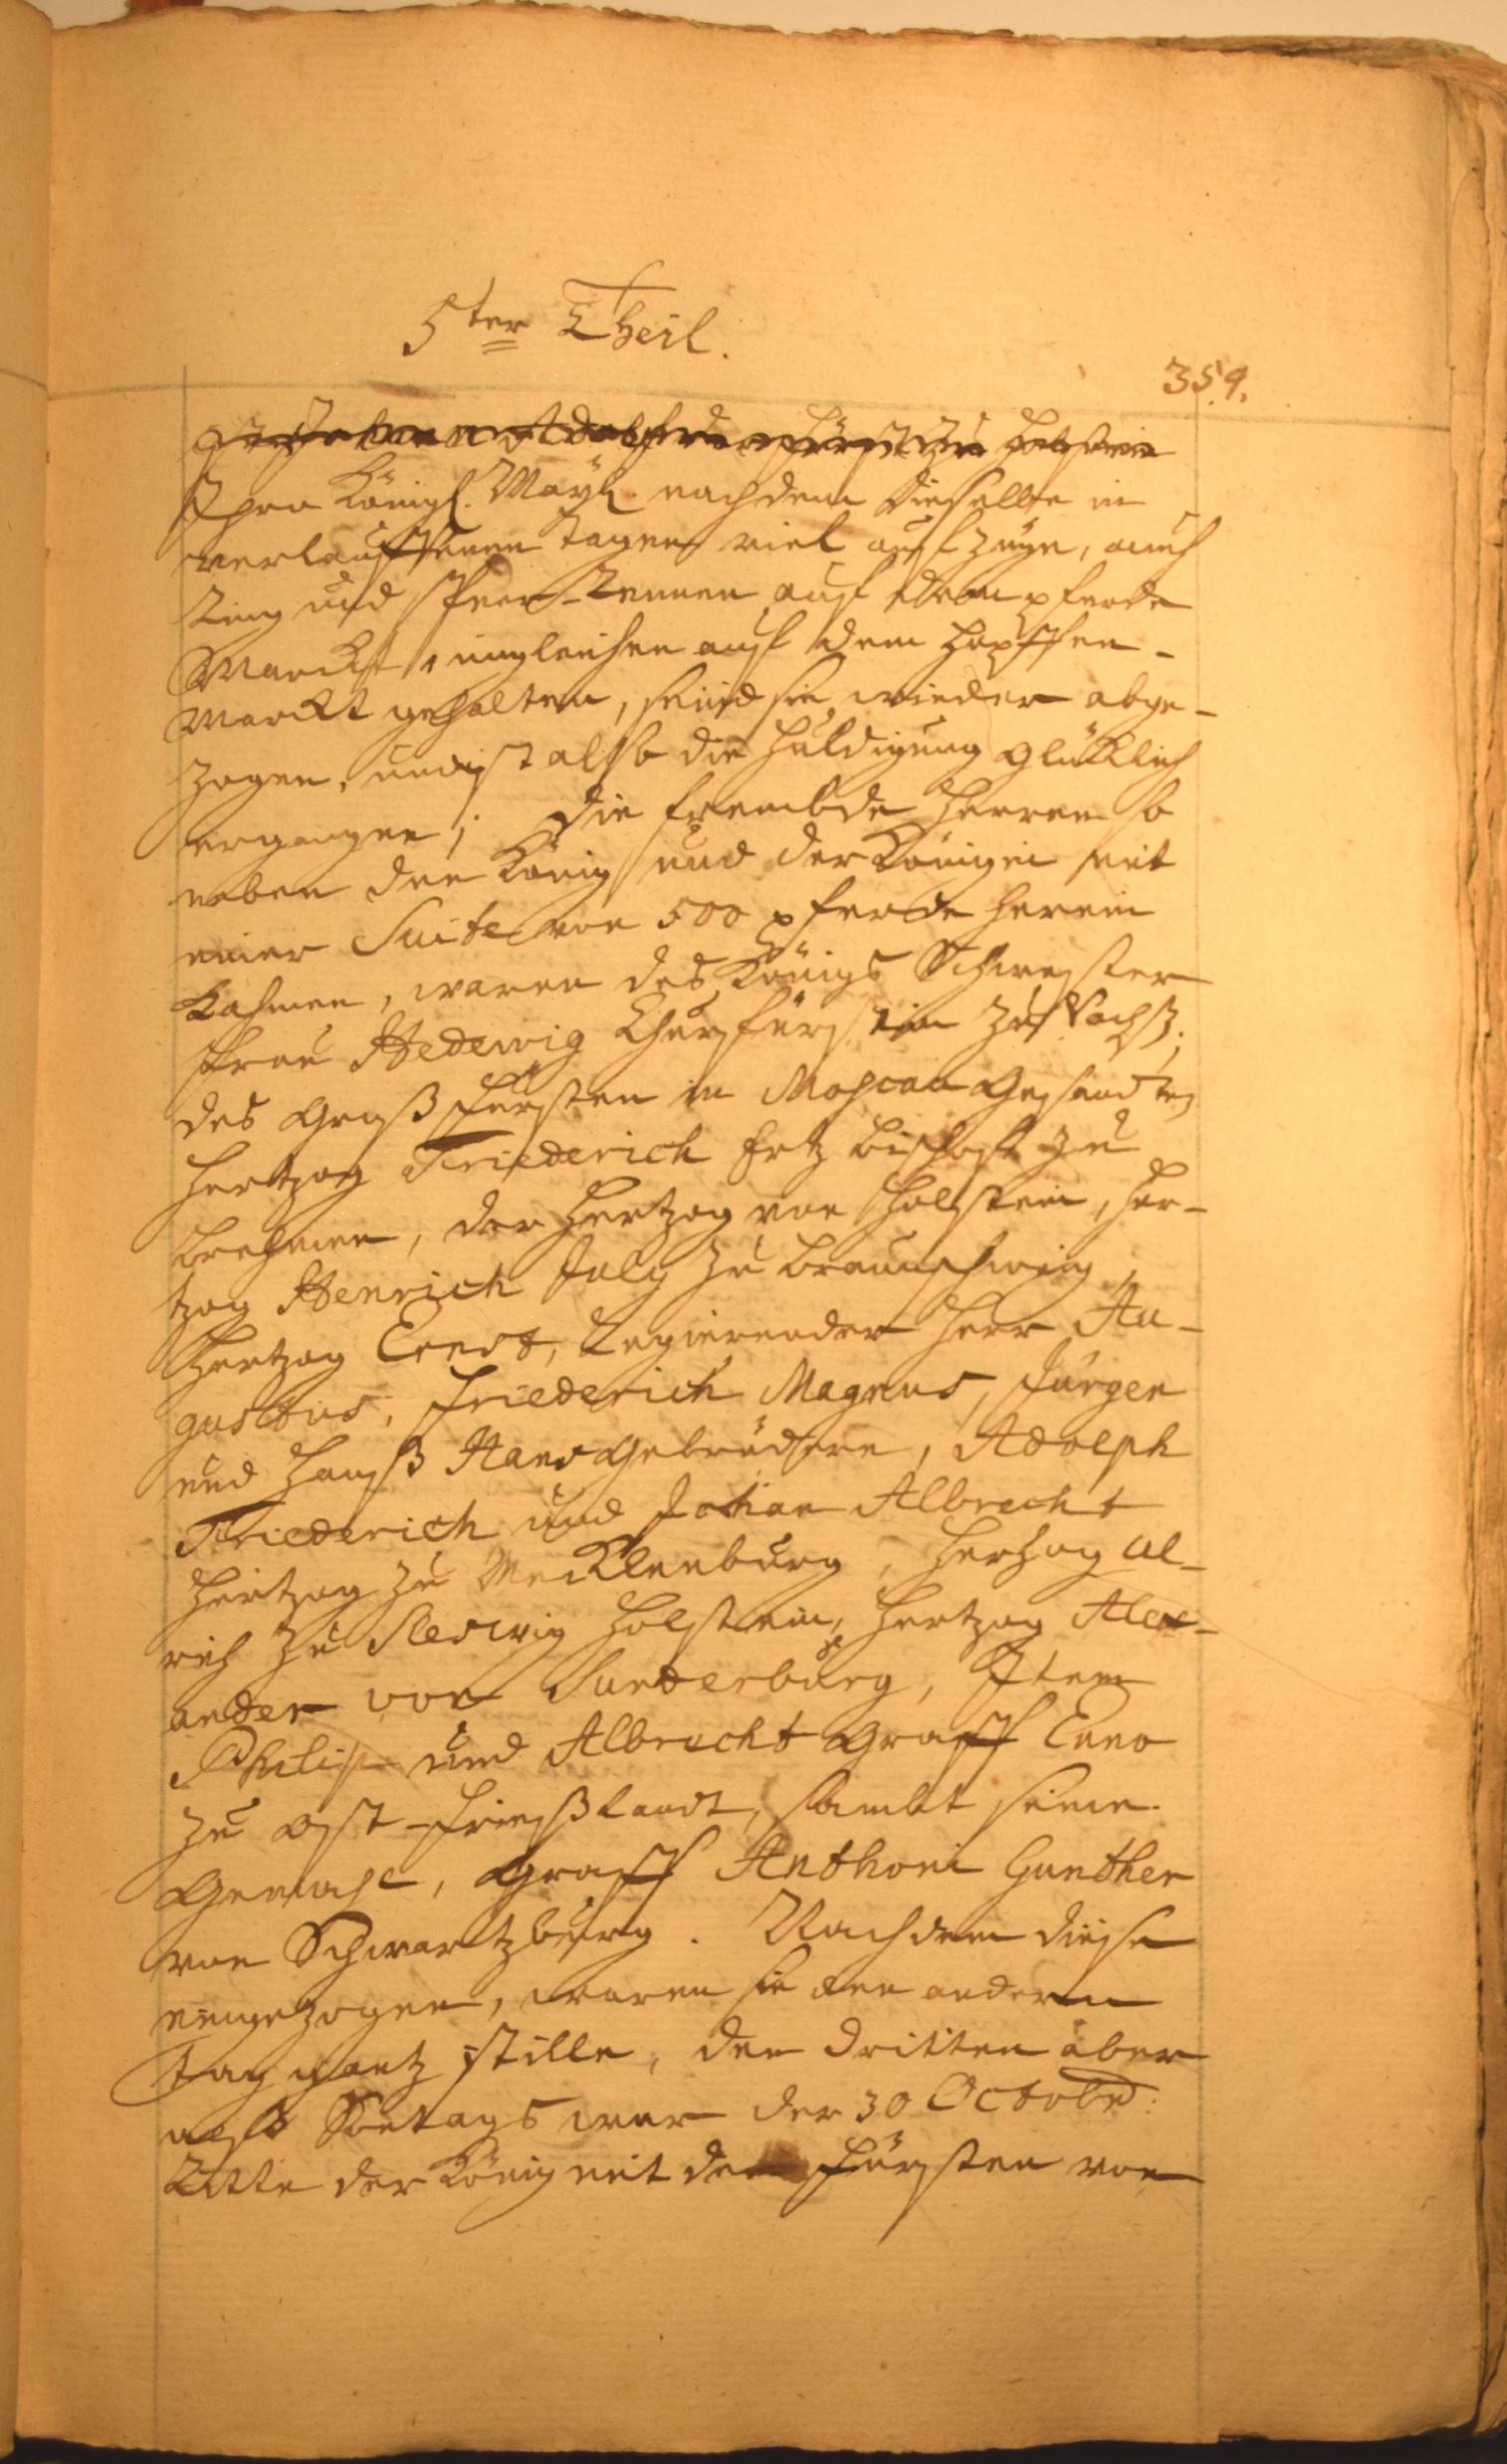 5ter Theil.
359.
Johann Adolf Fürst zu Holstein
Ihro Königl. Mayt. nachdem dieselbe in
verlauffenen Tagen viel auffzüge, auch
Ring und Speer-Rennen auf dem pferde
Marckt, imgleichen auf dem Hopffen-
Marckt gehalten, seind sie wieder abge-
zogen, und ist also die Huldigung glüklich
ergangen; Die frembde Herren so
neben den König und der Königin mit
einer Suite von 500 pferde herein
kahmen, waren des Königs Schwester
Frau Hedewig Churfürstin zu Sachß.
des Groß Fürsten in Moscau Gesandten
Hertzog Friederich Ertz Bischoff zu
Brehmen, der Hertzog von Holstein, Her-
tzog Henrich July zu Braunschweig,
Hertzog Ernst, Regierender Herr Au-
gustus, Friederich Magnus, Jürgen
und Hanß Hans Gebrüdere, Adolph
Friederich und Johan Albrecht
Hertzog zu Mecklenburg, Hertzog Ul-
rich zu Sleswig Holstein, Hertzog Alex-
ander von Sunderburg, Item
Philip und Albrecht Graff Enno
zu Ost-Frießlandt, sambt seine
Gemahl, Graff Anthoni Gunther
von Schwartzburg. Nachdem diese
eingezogen, waren sie den andern
Tag gantz stille, den dritten aber
alß Sontags war der 30 Octobr.
Ritte der König mit den Fürsten von